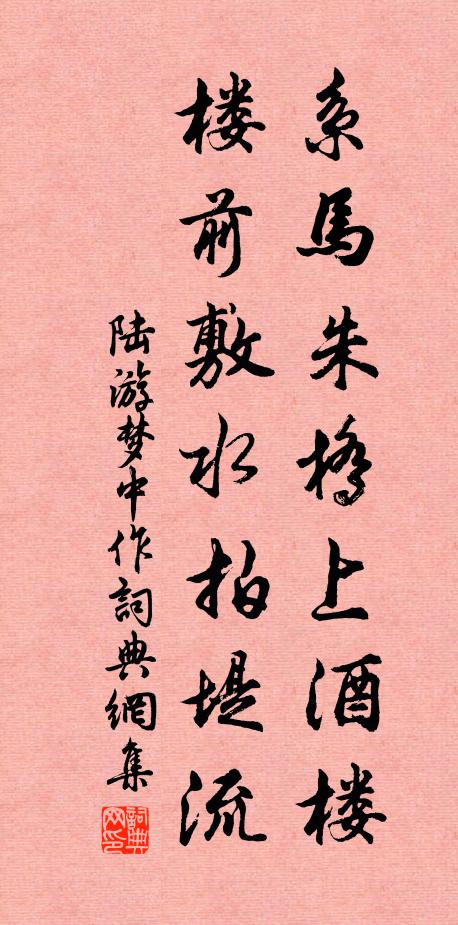 系馬朱橋上酒楼
楼前敷水拍堤流
陆游梦中作詞典網集
詞典网印